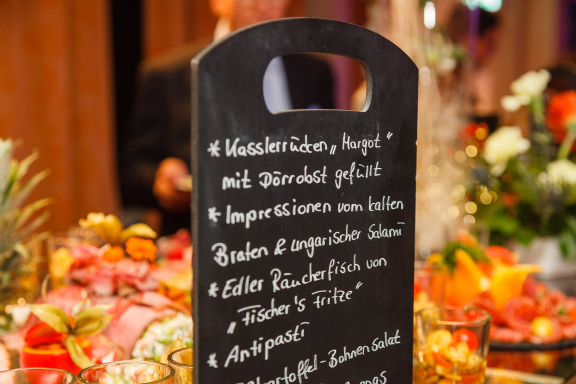 * Kasslerrücken „Margot“
mit Dörrobst gefüllt
* Impressionen vom kalten
Braten & ungarischer Salami
* Edler Räucherfisch von
„Fischer's Fritze“
* Antipasti
Kartoffel-Bohnensalat